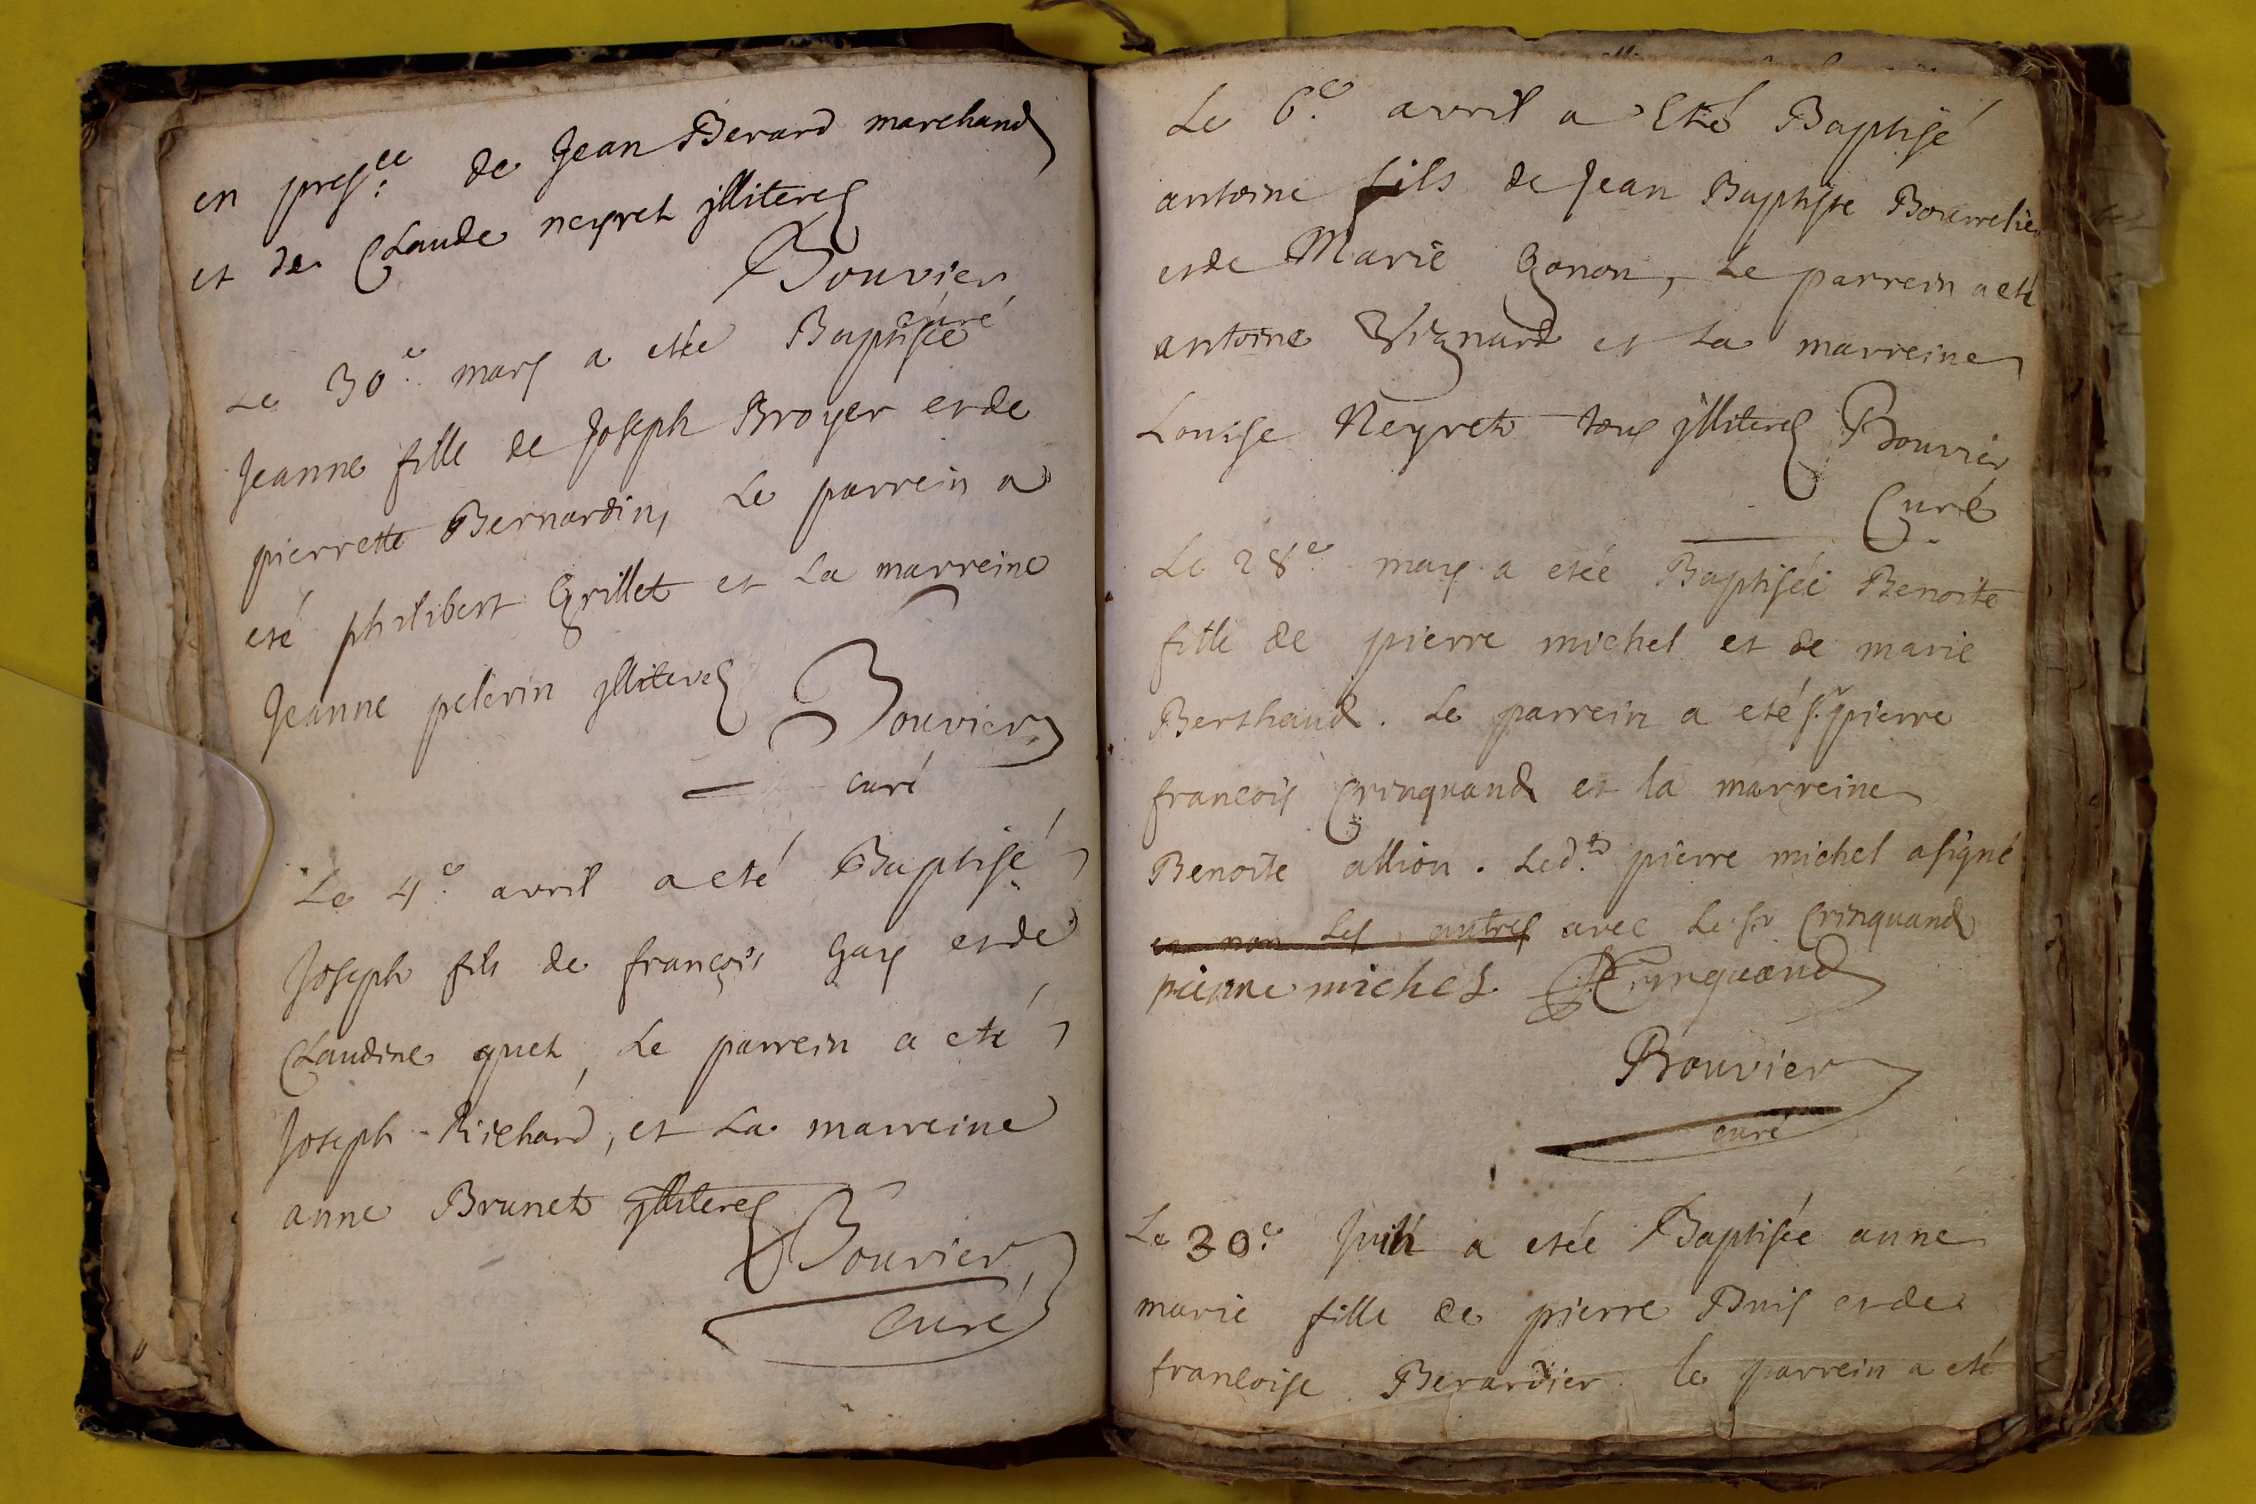 en presce. de Jean Berard marchand
et de Claude neyret jlliteres
Bouvier
curé
Le 30e. mars a etée Baptisée
Jeanne fille de Joseph Broyer et de
pierrette Bernardin, Le parrein a
eté philibert Grillet et La marreine
Jeanne pelerin jlliteres Bouvier
curé
Le 4e. avril a eté Baptisé
Joseph fils de françois Gay et de
Claudine guet, Le parrein a eté
Joseph Richard, et La marreine
anne Brunet jlliteres
Bouvier
Curé
Le 6e. avril a Eté Baptisé
antoine fils de Jean Baptiste Bourrelier
et de Marie Gonon, Le parrein a eté
antoine Vignard et La marreine
Louise Neyret tous jlliteres Bouvier
Curé
Le 28e. mars a etée Baptisée Benoite
fille de pierre michel et de marie
Berthaud. Le parrein a eté sr. pierre
françois Crinquand et la marreine
Benoite allion. Ledt. pierre michel a signé
et non les autres avec Le sr Crinquand
pierre michel Crinquand
Bouvier
curé
Le 30e. a etée Baptisée anne
marie fille de pierre Buis et de
françoise Berardier le parrein a eté